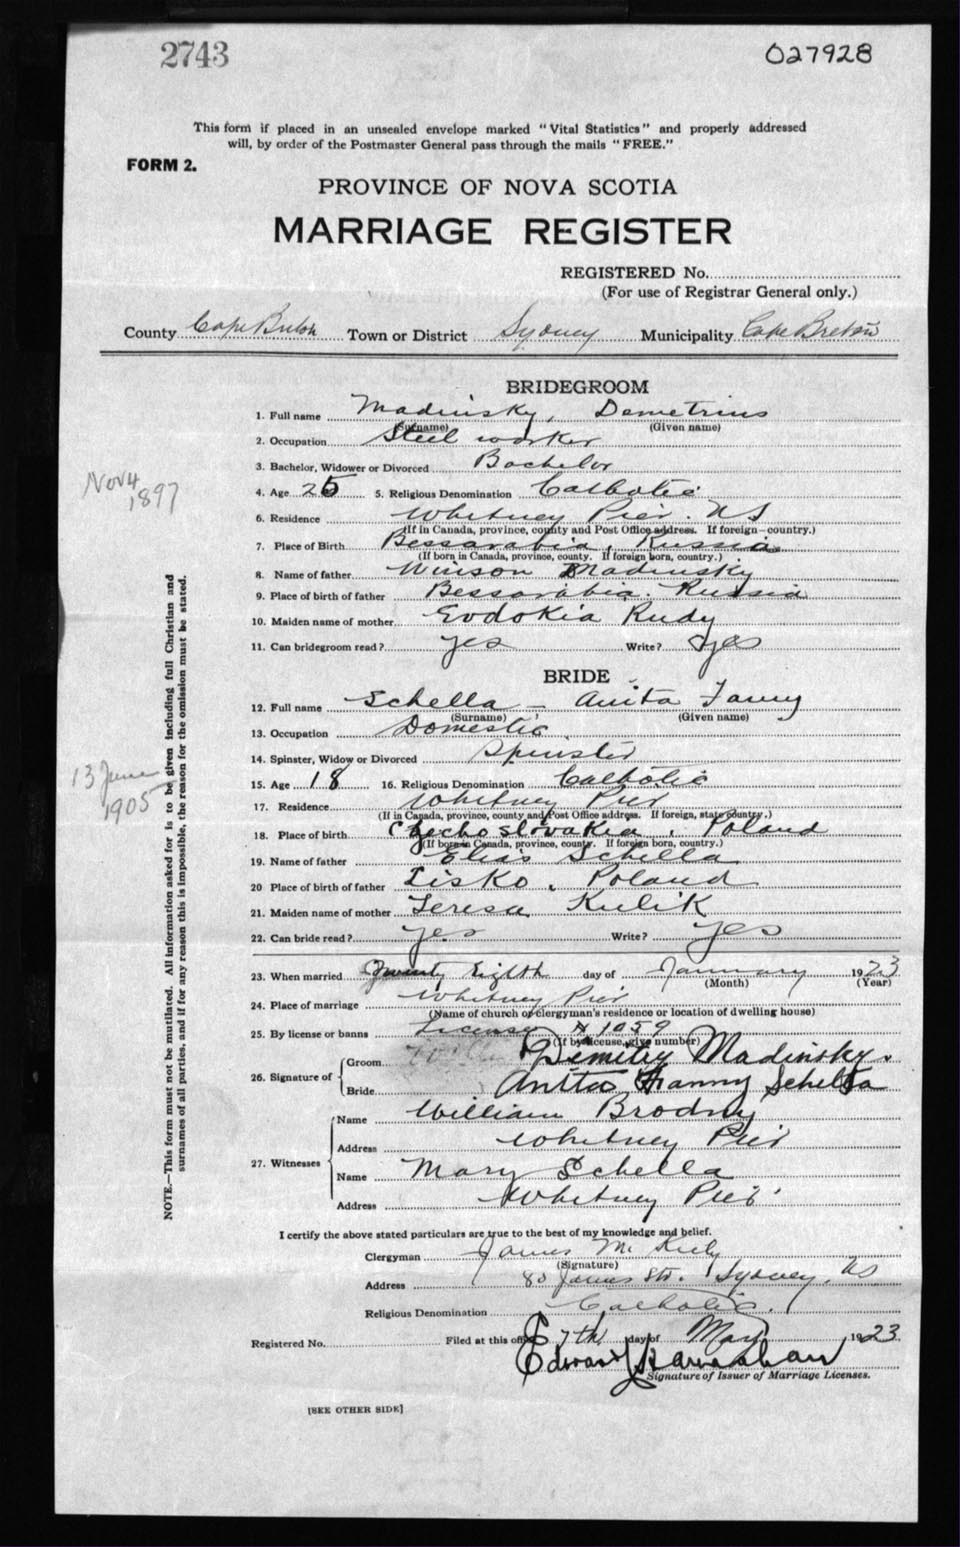 2743
027928
This form if placed in an unsealed envelope marked "Vital Statistics" and properly addressed
will, by order of the Postmaster General pass through the mails "FREE."
FORM 2.
PROVINCE OF NOVA SCOTIA
MARRIAGE REGISTER
REGISTERED No.
(For use of Registrar General only.)
County Cape Breton Town or District Sydney Municipality Cape Breton
BRIDEGROOM
1. Full name Madinsky, Demetrius
(Surname) (Given name)
2. Occupation Steel worker
3. Bachelor, Widower or Divorced Bachelor
Nov 4
1897
4. Age 25 5. Religious Denomination Catholic
6. Residence Whitney Pier. NS
(If in Canada, province, county and Post Office address. If foreign—country.)
7. Place of Birth Bessarabia, Russia
(If born in Canada, province, county. If foreign born, country.)
8. Name of father Madinsky
9. Place of birth of father Bessarabia. Russia
10. Maiden name of mother Evdokia Rudy
11. Can bridegroom read? yes Write? yes
BRIDE
12. Full name Schella - Anita Fanny
(Surname) (Given name)
13. Occupation Domestic
14. Spinster, Widow or Divorced Spinster
13 June
1905
15. Age 18 16. Religious Denomination Catholic
17. Residence Whitney Pier
(If in Canada, province, county and Post Office address. If foreign, state country.)
18. Place of birth Czechoslovakia, Poland
(If born in Canada, province, county. If foreign born, country.)
19. Name of father Elias Schella
20 Place of birth of father Lisko, Poland
21. Maiden name of mother Teresa Kulik
22. Can bride read? yes Write? yes
23. When married Twenty Eighth day of January 1923
(Month) (Year)
24. Place of marriage Whitney Pier
(Name of church or clergyman's residence or location of dwelling house)
25. By license or banns License N 1059
(If by license, give number)
26. Signature of
Groom Demitry Madinsky.
Bride Anita Fanny Schella
27. Witnesses
Name William Brodny
Address Whitney Pier
Name Mary Schella
Address Whitney Pier
I certify the above stated particulars are true to the best of my knowledge and belief.
Clergyman James M.
(Signature)
Address 80 James Str. Sydney, NS
Religious Denomination Catholic.
Registered No. Filed at this office 7th day of May 1923.
Edward
Signature of Issuer of Marriage Licenses.
[SEE OTHER SIDE]
NOTE.—This form must not be mutilated. All information asked for is to be given including full Christian and
surnames of all parties, and if for any reason this is impossible, the reason for the omission must be stated.